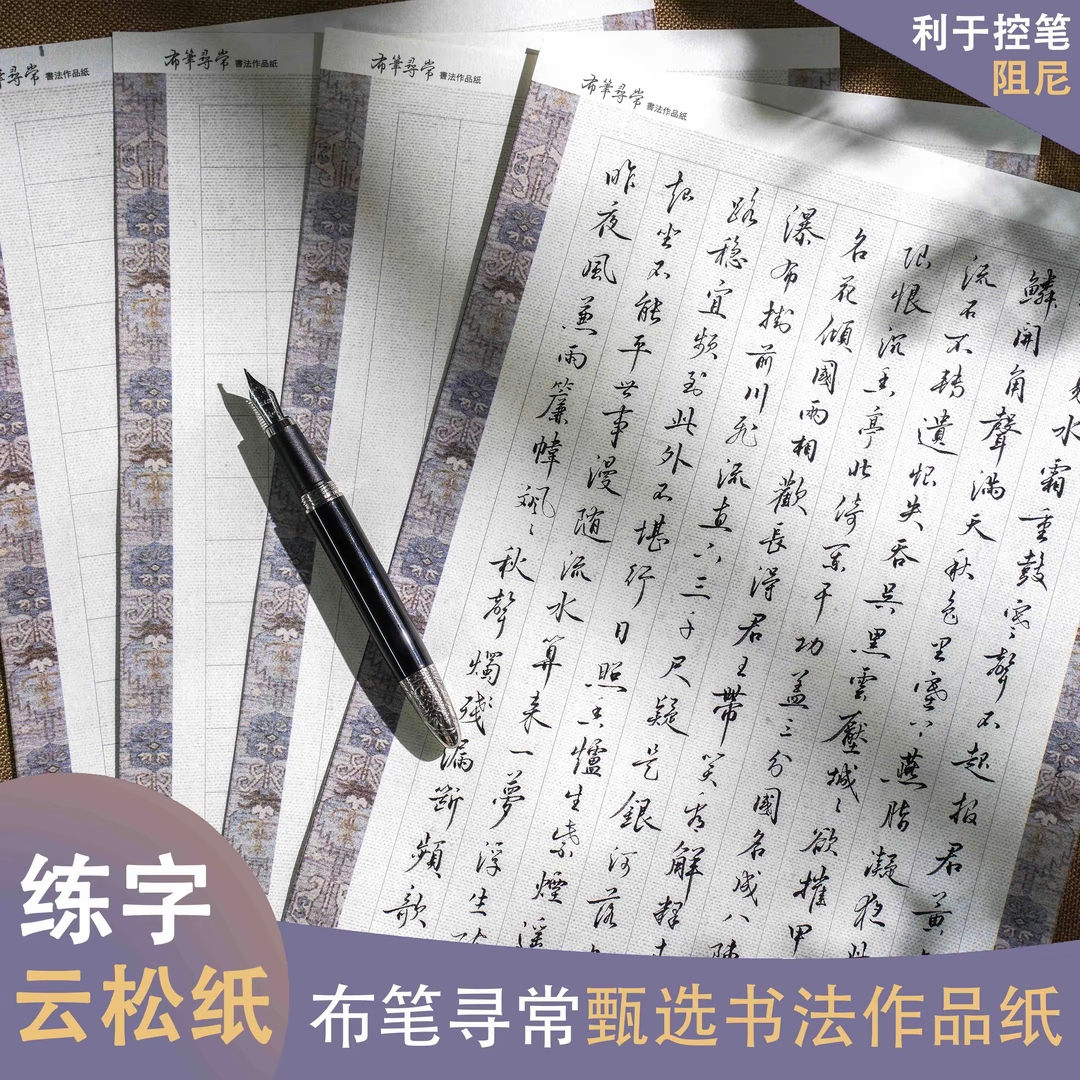 利于控笔
阻尼
布筆尋常 書法作品紙
布筆尋常 書法作品紙
布筆尋常 書法作品紙
布筆尋常 書法作品紙
昨夜風兼雨簾幃颯々秋聲燭殘漏斷頻欹
起坐不能平世事漫随流水算来一夢浮生
路穏宜频到此外不堪行日照香爐生紫煙遥
瀑布掛前川飛流直下三千尺疑是銀河落
名花傾國兩相歡長得君王帶笑看解釋
限恨沉香亭北倚闌干功蓋三分國名成八陣
流石不轉遺恨失吞吳黑雲壓城々欲摧甲
鱗開角聲滿天秋色里塞上燕脂凝夜紫
水霜重鼓寒聲不起报君黄
练字
云松纸
布笔寻常甄选书法作品纸